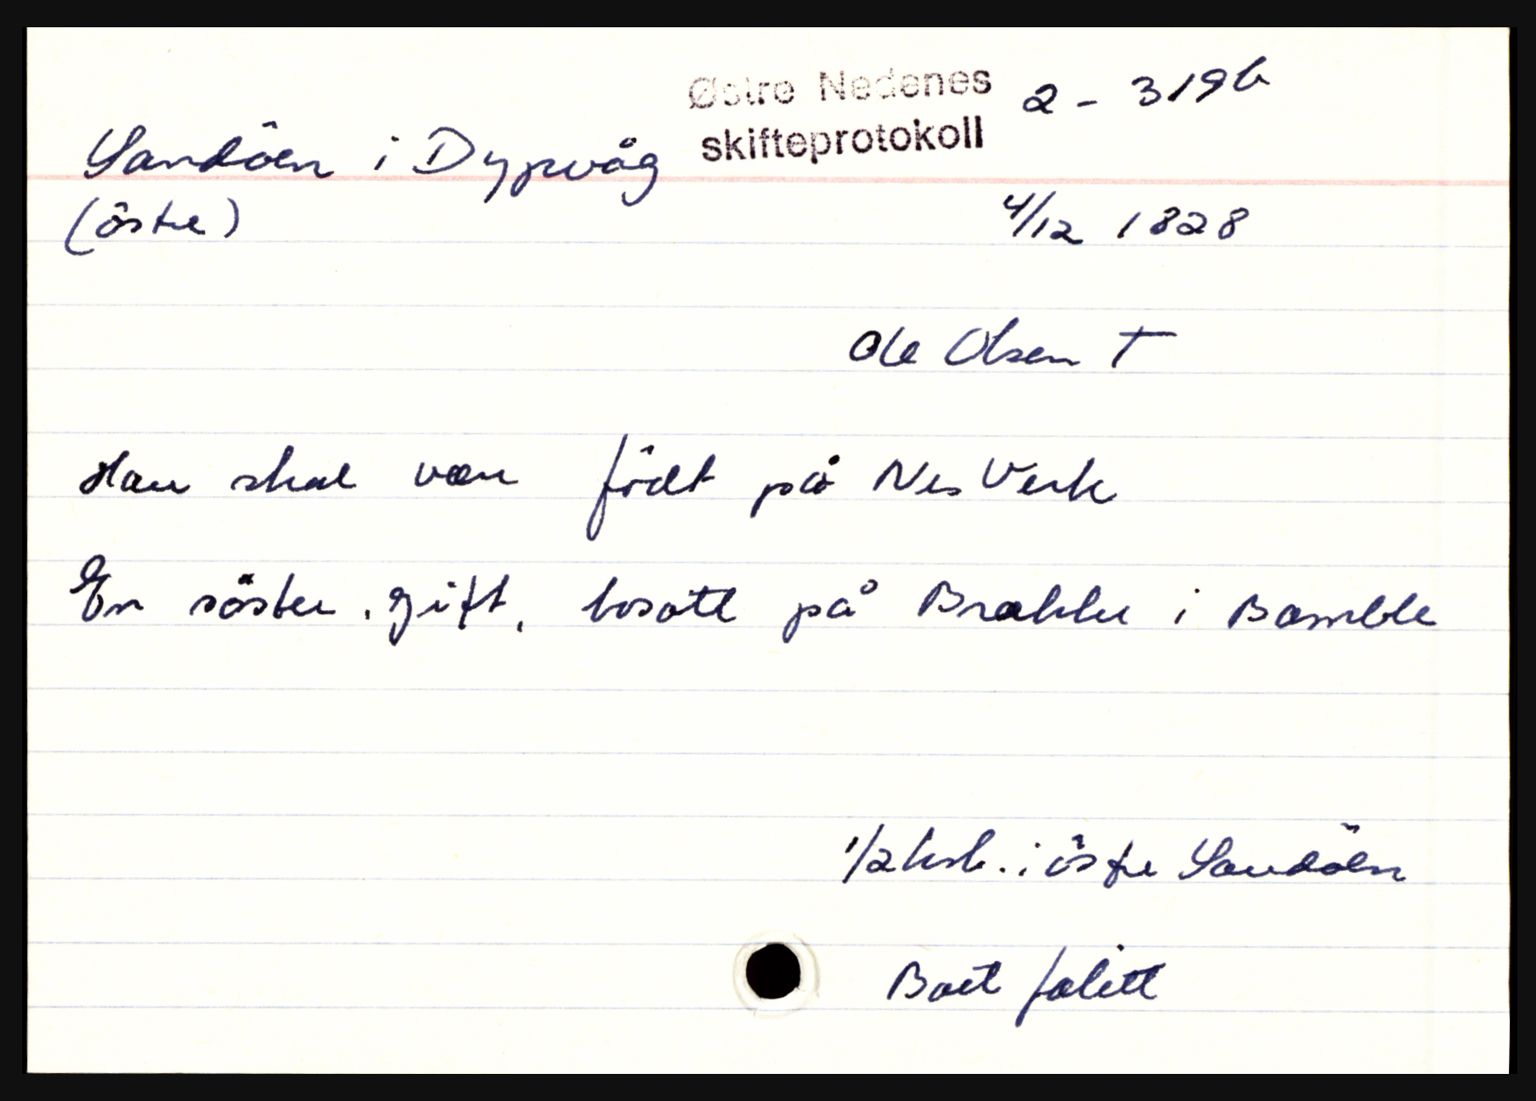 Østre Nedenes 2 - 319b
skifteprotokoll
Sandöen i Dypvåg
(östre)
4/12 1828
Ole Olsen †
Han skal være födt på Nes Verk
En söster, gift, bosatt på Brække i Bamble
1/2 hsb. i östre Sandöen
Boet falitt